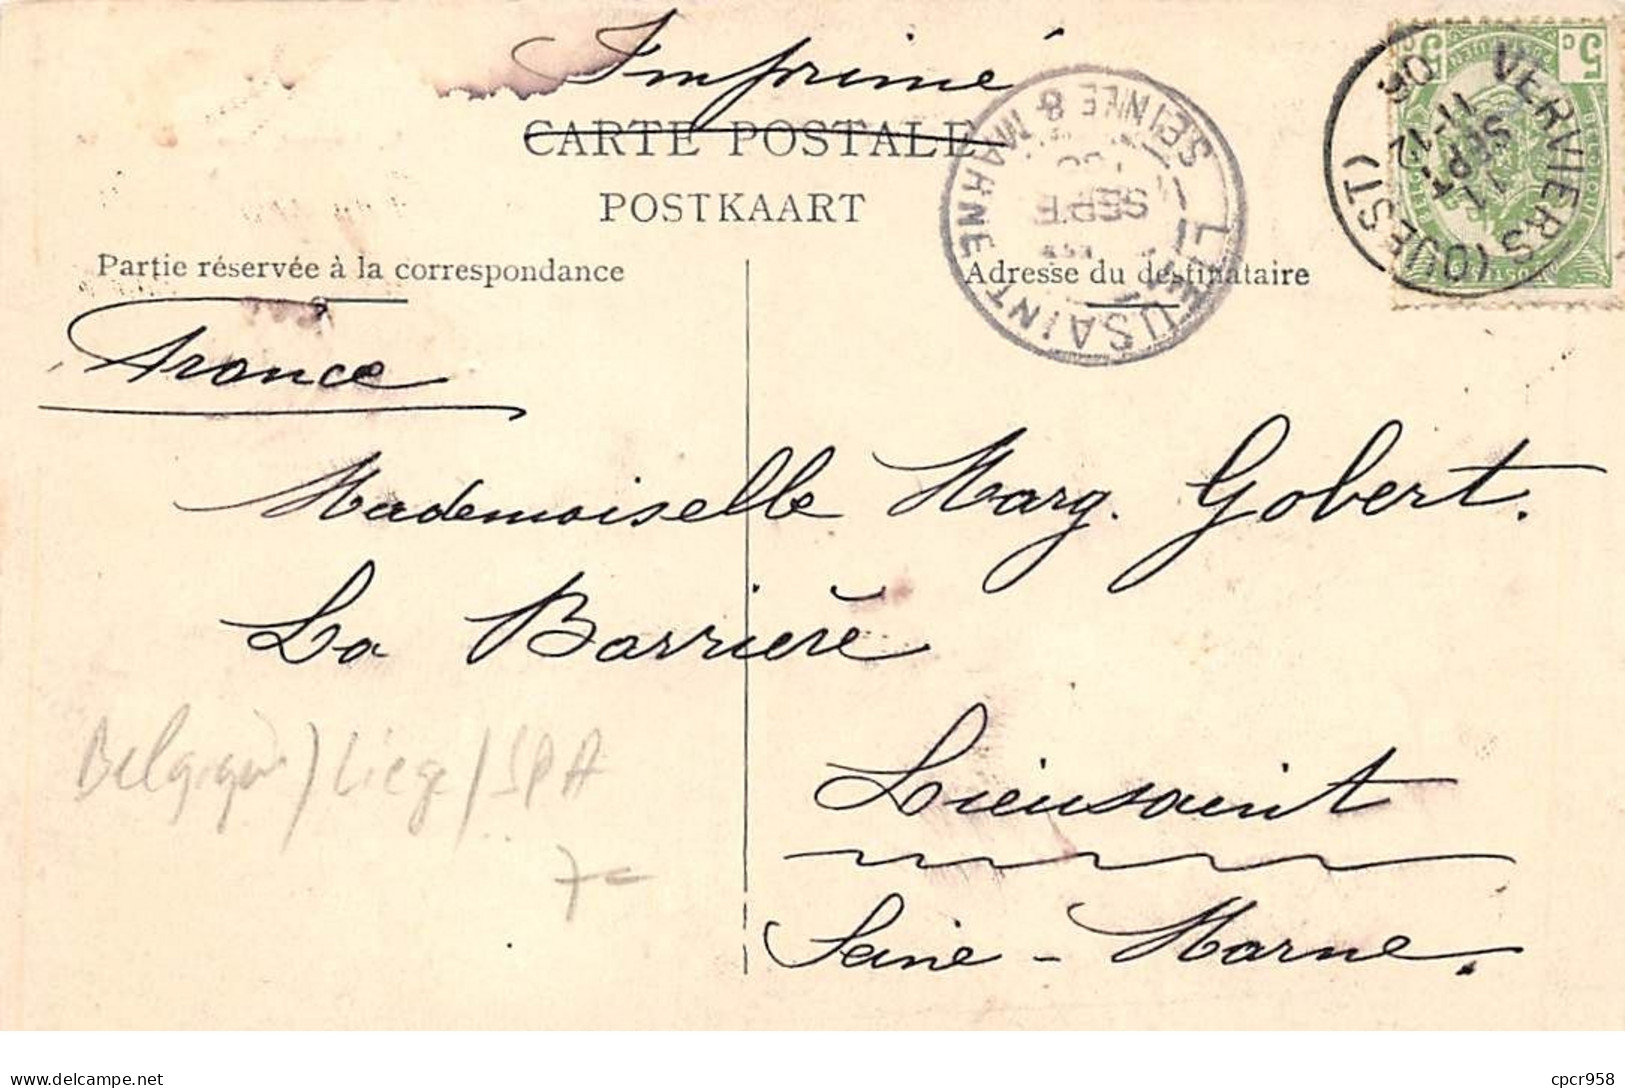 Imprimé
CARTE POSTALE
POSTKAART
Partie réservée à la correspondance
Adresse du destinataire
VERVIERS (OUEST)
11
SEPT
11-12
LIEUSAINT
SEINE & MARNE
SEPT
5 c
5 c
France
Mademoiselle Marg. Gobert.
La Barrière
Lieusaint
Seine - Marne.
Belgique / Liège / SPA
7-
delcampe.net
cpcr958